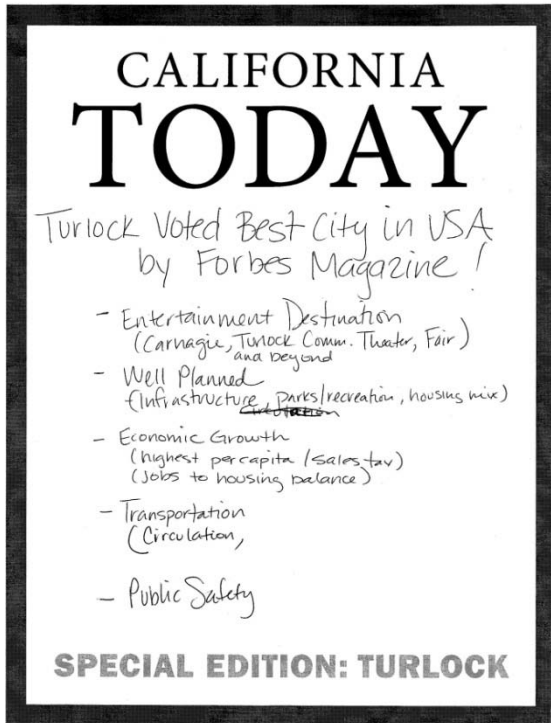 CALIFORNIA
TODAY
Turlock Voted Best City in USA
by Forbes Magazine!
- Entertainment Destination
(Carnagie, Turlock Comm. Theater, Fair)
and beyond
- Well Planned
(Infrastructure, parks/recreation, housing mix)
- Economic Growth
(highest per capita / sales tax)
(Jobs to housing balance)
- Transportation
(Circulation,
- Public Safety
SPECIAL EDITION: TURLOCK